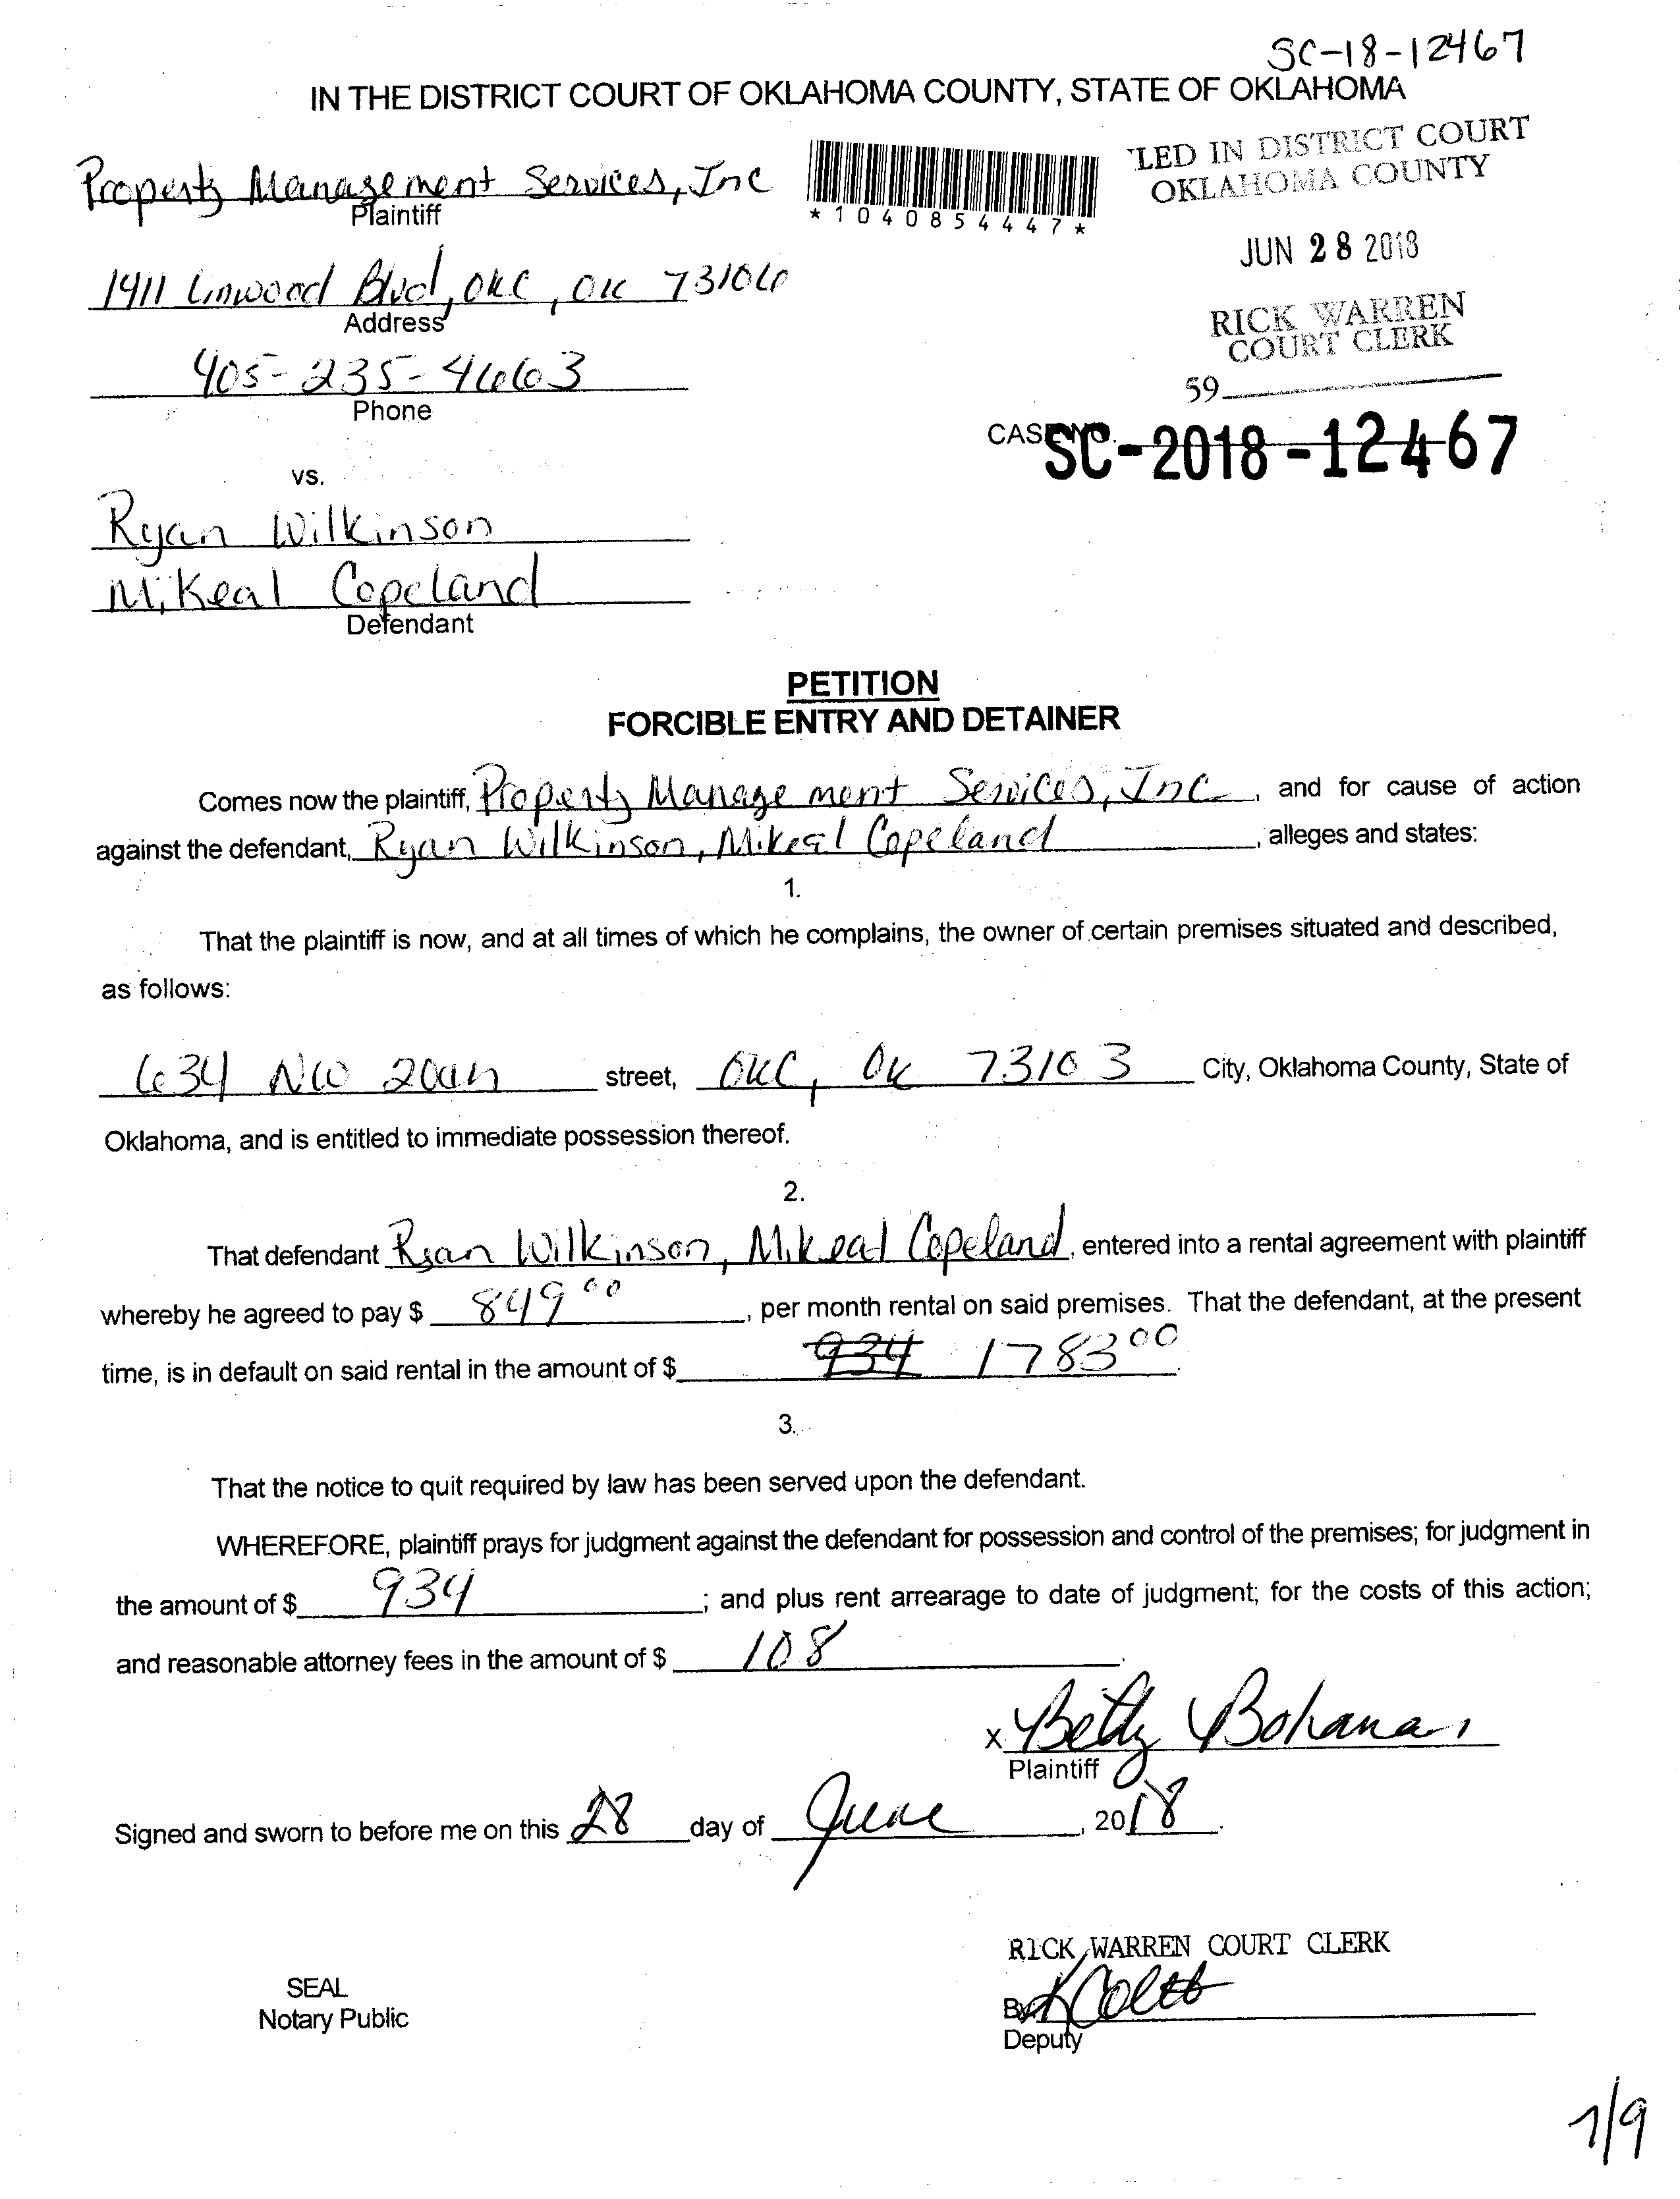 SC-18-12467
IN THE DISTRICT COURT OF OKLAHOMA COUNTY, STATE OF OKLAHOMA
Property Management Services, Inc
Plaintiff
*1040854447*
LED IN DISTRICT COURT
OKLAHOMA COUNTY
JUN 28 2018
RICK WARREN
COURT CLERK
59
1411 Linwood Blvd, OKC, OK 73106
Address
405-235-4663
Phone
CASE NO. SC-2018-12467
vs.
Ryan Wilkinson
Mikeal Copeland
Defendant
PETITION
FORCIBLE ENTRY AND DETAINER
Comes now the plaintiff, Property Management Services, Inc, and for cause of action
against the defendant, Ryan Wilkinson, Mikeal Copeland, alleges and states:
1.
That the plaintiff is now, and at all times of which he complains, the owner of certain premises situated and described,
as follows:
634 NW 20th street, OKC, OK 73103 City, Oklahoma County, State of
Oklahoma, and is entitled to immediate possession thereof.
2.
That defendant Ryan Wilkinson, Mikeal Copeland, entered into a rental agreement with plaintiff
whereby he agreed to pay $ 849 00, per month rental on said premises. That the defendant, at the present
time, is in default on said rental in the amount of $ 934 1783 00.
3.
That the notice to quit required by law has been served upon the defendant.
WHEREFORE, plaintiff prays for judgment against the defendant for possession and control of the premises; for judgment in
the amount of $ 934; and plus rent arrearage to date of judgment; for the costs of this action;
and reasonable attorney fees in the amount of $ 108.
x Betty Bohanan
Plaintiff
Signed and sworn to before me on this 28 day of June, 2018.
RICK WARREN COURT CLERK
SEAL
Notary Public
By
Deputy
7/9